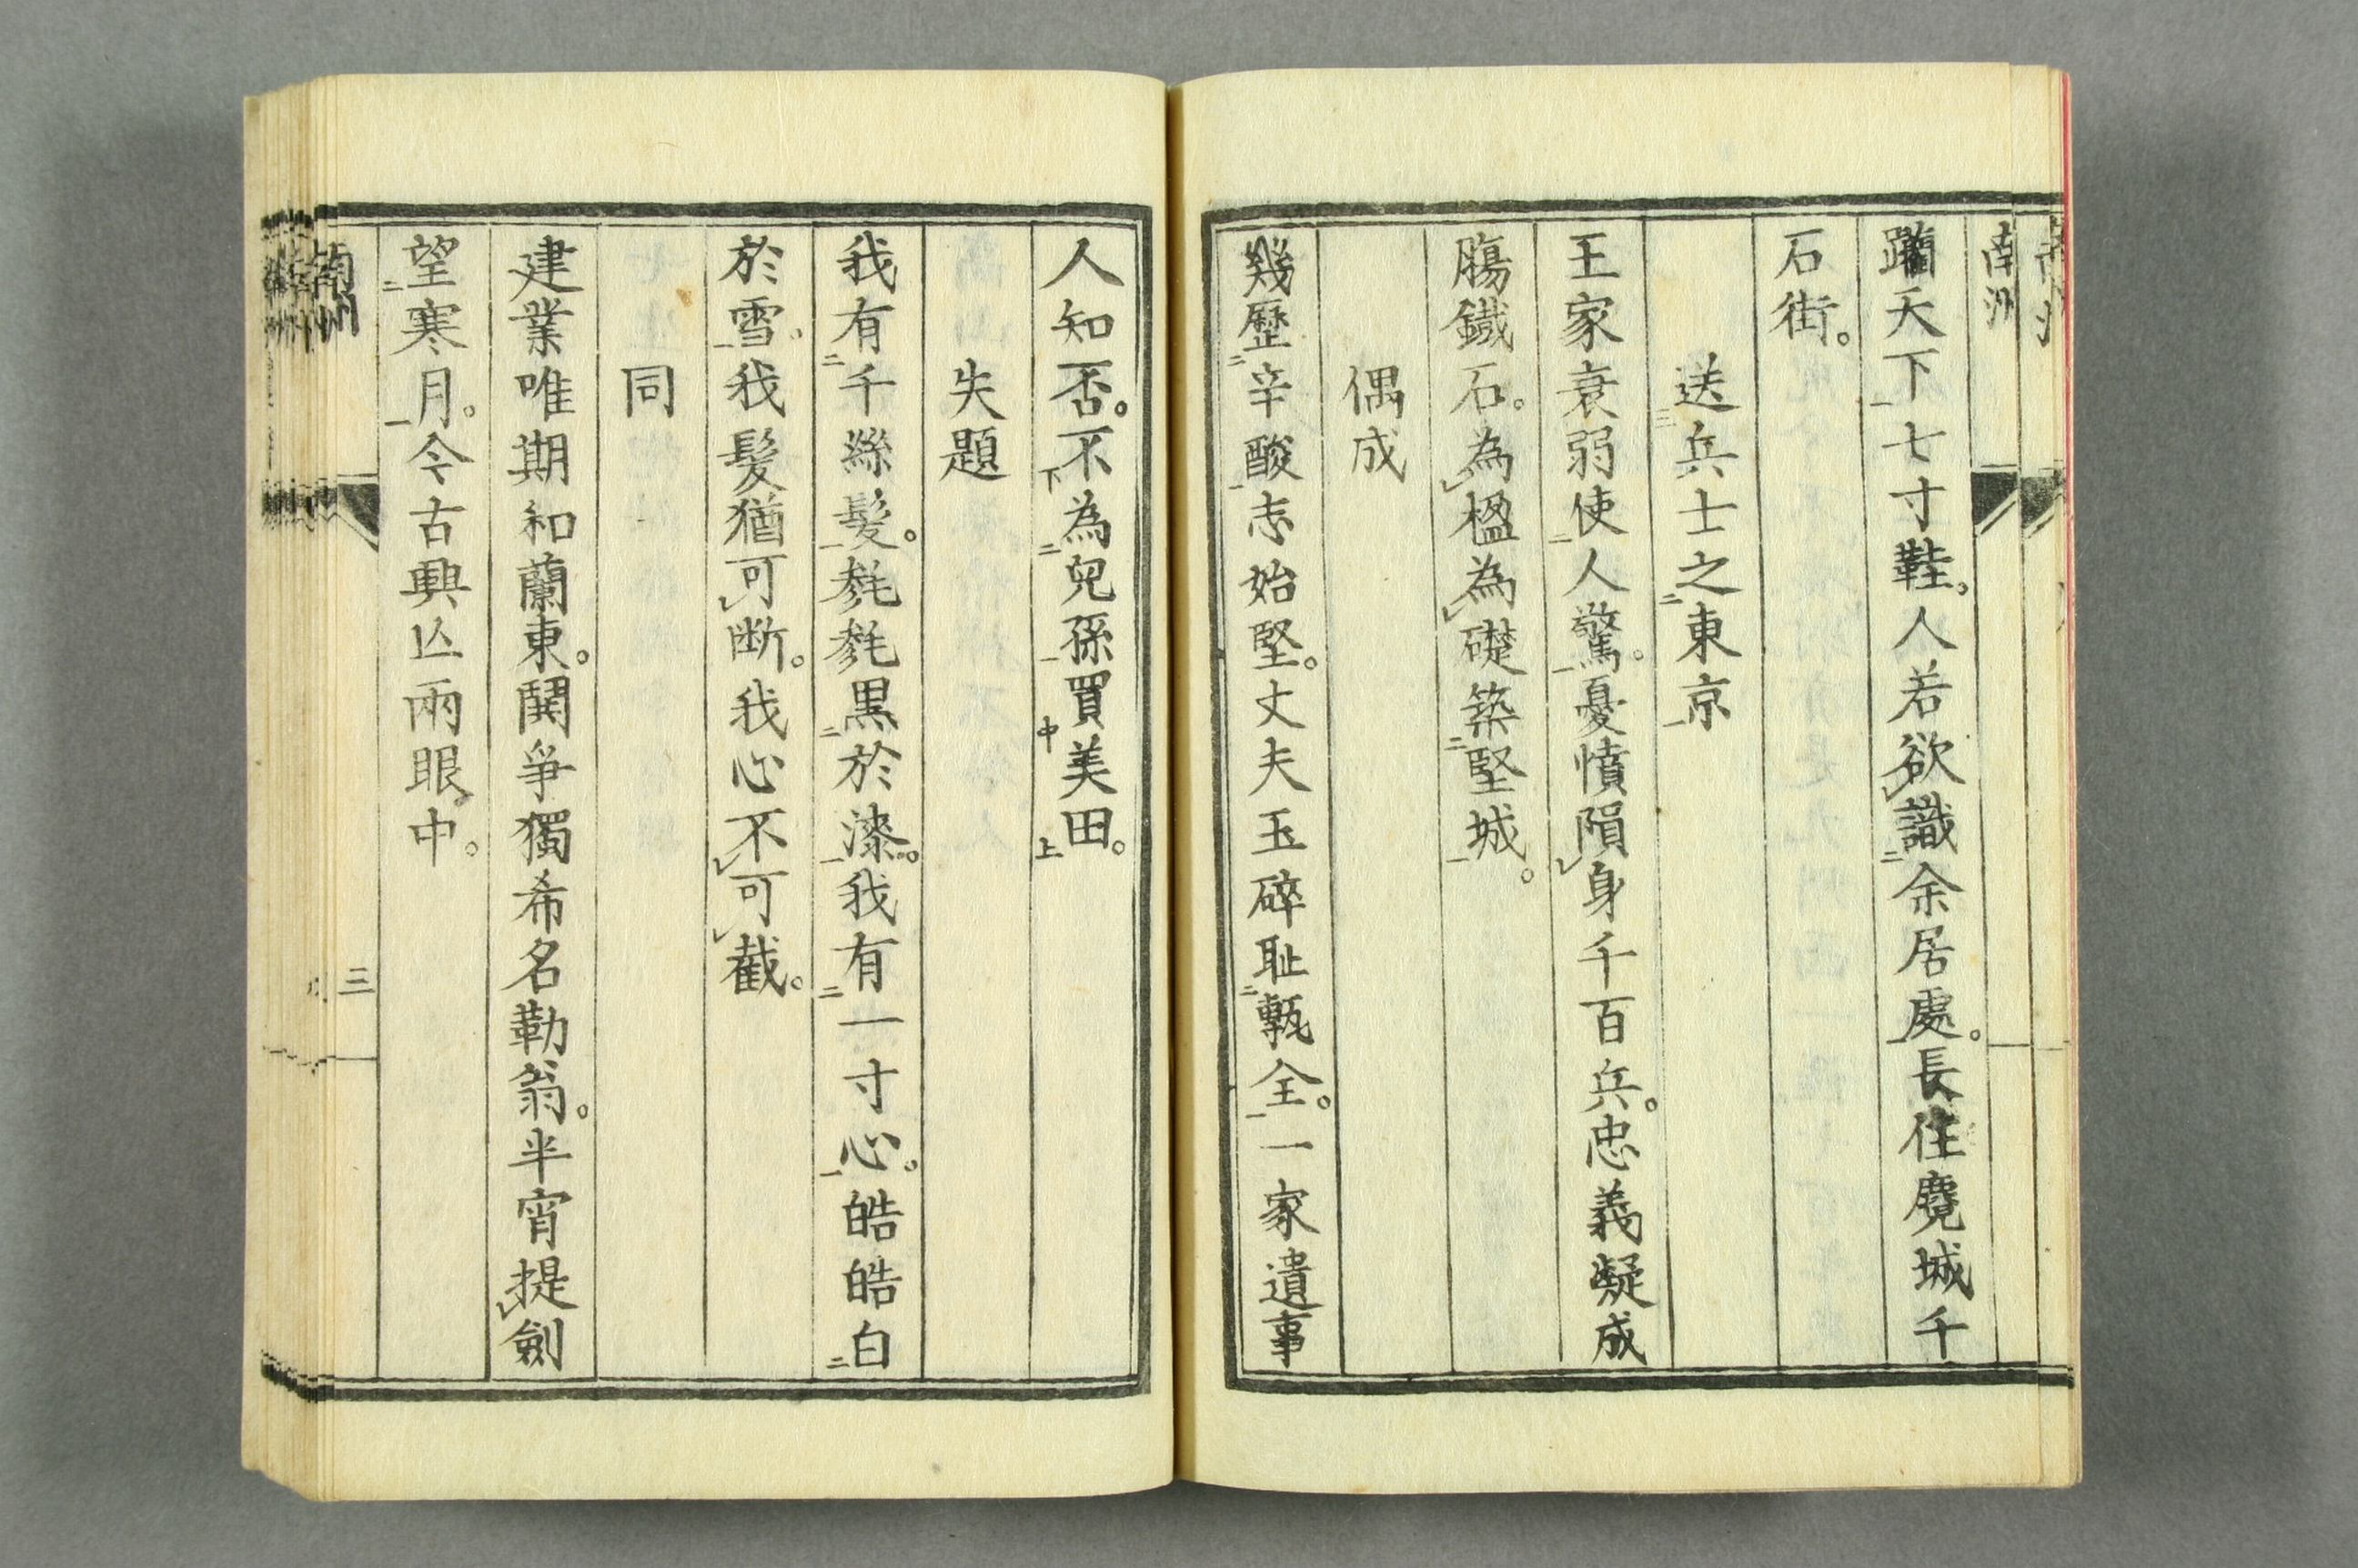 南洲
躪天下七寸鞋。人若欲識余居處。長住魔城千
石街。
送兵士之東京
王家衰弱使人驚。憂憤隕身千百兵。忠義凝成
腸鐵石。為楹為礎築堅城。
偶成
幾歷辛酸志始堅。丈夫玉碎耻甎全。一家遺事
人知否。不為兒孫買美田。
失題
我有千絲髮。毿毿黒於漆。我有一寸心。皓皓白
於雪。我髮猶可断。我心不可截。
同
建業唯期和蘭東。鬪爭獨希名勒翁。半宵提劍
望寒月。今古興亾兩眼中。
南洲
三